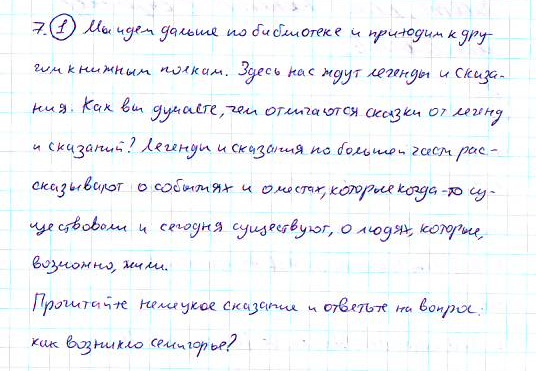 7. 1 Мы идем дальше по библиотеке и приходим к дру-
гим книжным полкам. Здесь нас ждут легенды и сказа-
ния. Как вы думаете, чем отличаются сказки от легенд
и сказаний? Легенды и сказания по большей части рас-
сказывают о событиях и о местах, которые когда-то су-
ществовали и сегодня существуют, о людях, которые,
возможно, жили.
Прочитайте немецкое сказание и ответьте на вопрос:
как возникло семигорье?